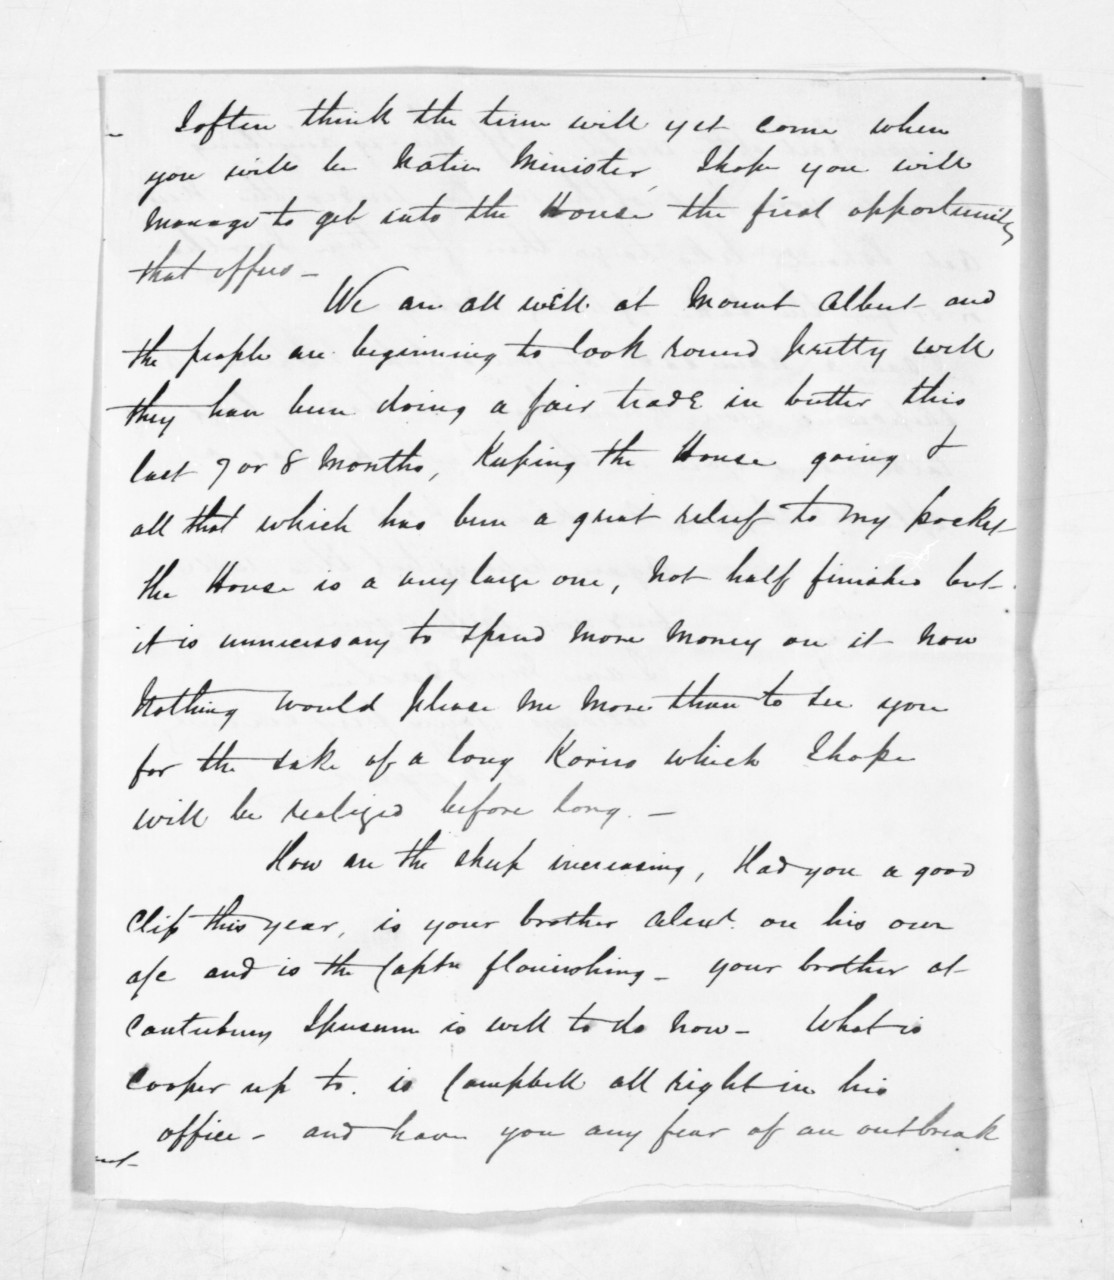 I often think the time will yet come when
you will be Native Minister, I hope you will
manage to get into the House the first opportunity
that offers -
We are all well at Mount Albert and
the people are beginning to look round pretty well
they have been doing a fair trade in butter this
last 7 or 8 Months, Keeping the House going &
all that which has been a great relief to my pocket
the House is a very large one, not half finished but
it is unnecessary to spend more money on it now
Nothing would please me more than to see you
for the sake of a long Korero which I hope
will be realized before long. -
How are the sheep increasing, Had you a good
Clip this year, is your brother Alexr. on his own
a/c and is the Captn flourishing - your brother at
Canterbury I presume is well to do now - What is
Cooper up to. is Campbell all right in his
office - and have you any fear of an outbreak